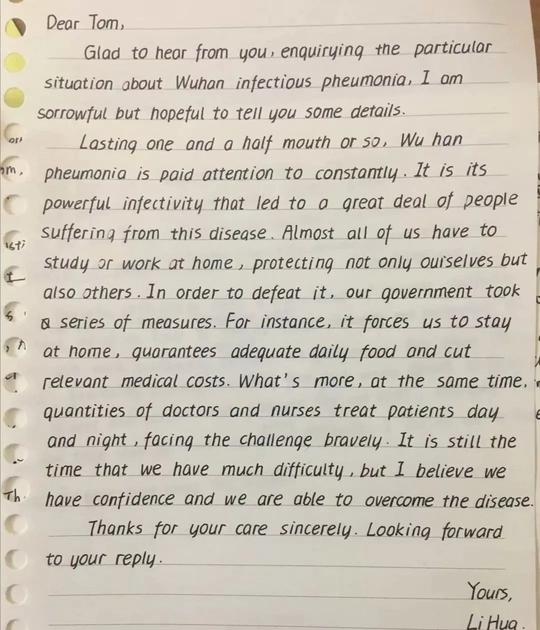 Dear Tom,
Glad to hear from you, enquirying the particular
situation about Wuhan infectious pheumonia, I am
sorrowful but hopeful to tell you some details.
Lasting one and a half mouth or so, Wu han
pheumonia is paid attention to constantly. It is its
powerful infectivity that led to a great deal of people
suffering from this disease. Almost all of us have to
study or work at home, protecting not only ouiselves but
also others. In order to defeat it, our government took
a series of measures. For instance, it forces us to stay
at home, guarantees adequate daily food and cut
relevant medical costs. What's more, at the same time,
quantities of doctors and nurses treat patients day
and night, facing the challenge bravely. It is still the
time that we have much difficulty, but I believe we
have confidence and we are able to overcome the disease.
Thanks for your care sincerely. Looking forward
to your reply.
Yours,
Li Hua.